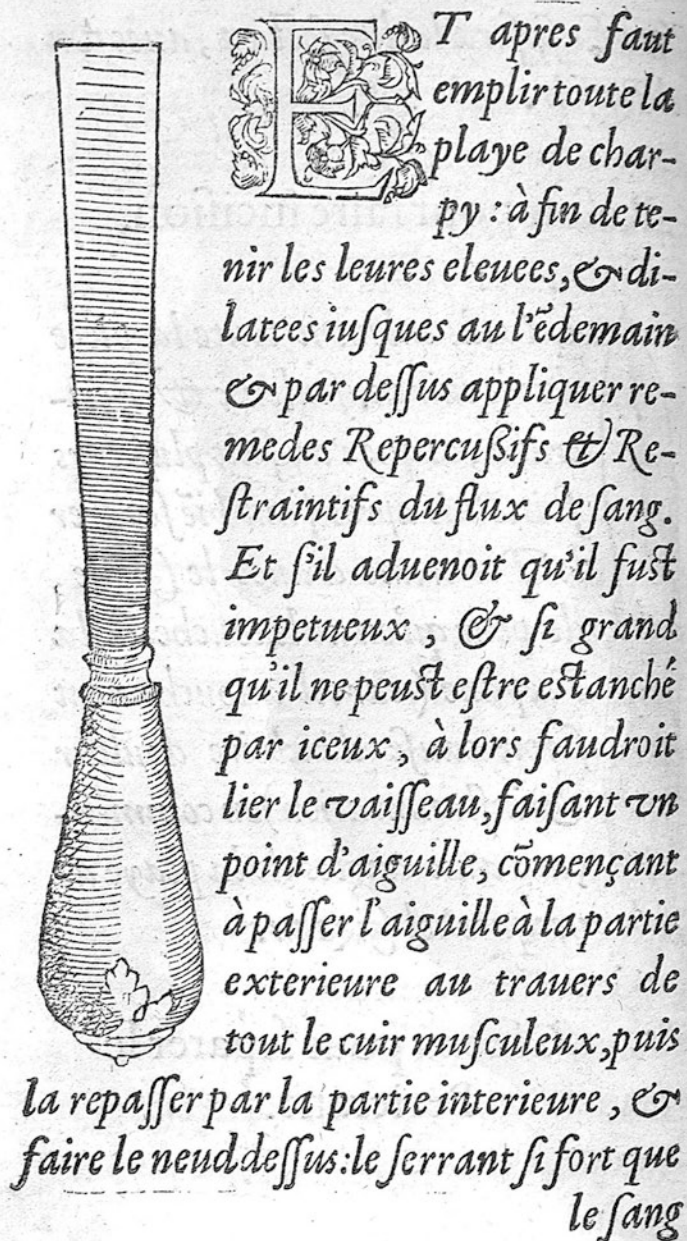 ET apres faut
emplir toute la
playe de char-
py : à fin de te-
nir les leures eleuees, & di-
latees iusques au l'ẽdemain
& par dessus appliquer re-
medes Repercussifs & Re-
straintifs du flux de sang.
Et s'il aduenoit qu'il fust
impetueux, & si grand
qu'il ne peust estre estanché
par iceux, à lors faudroit
lier le vaisseau, faisant vn
point d'aiguille, cõmençant
à passer l'aiguille à la partie
exterieure au trauers de
tout le cuir musculeux, puis
la repasser par la partie interieure, &
faire le neud dessus: le serrant si fort que
le sang